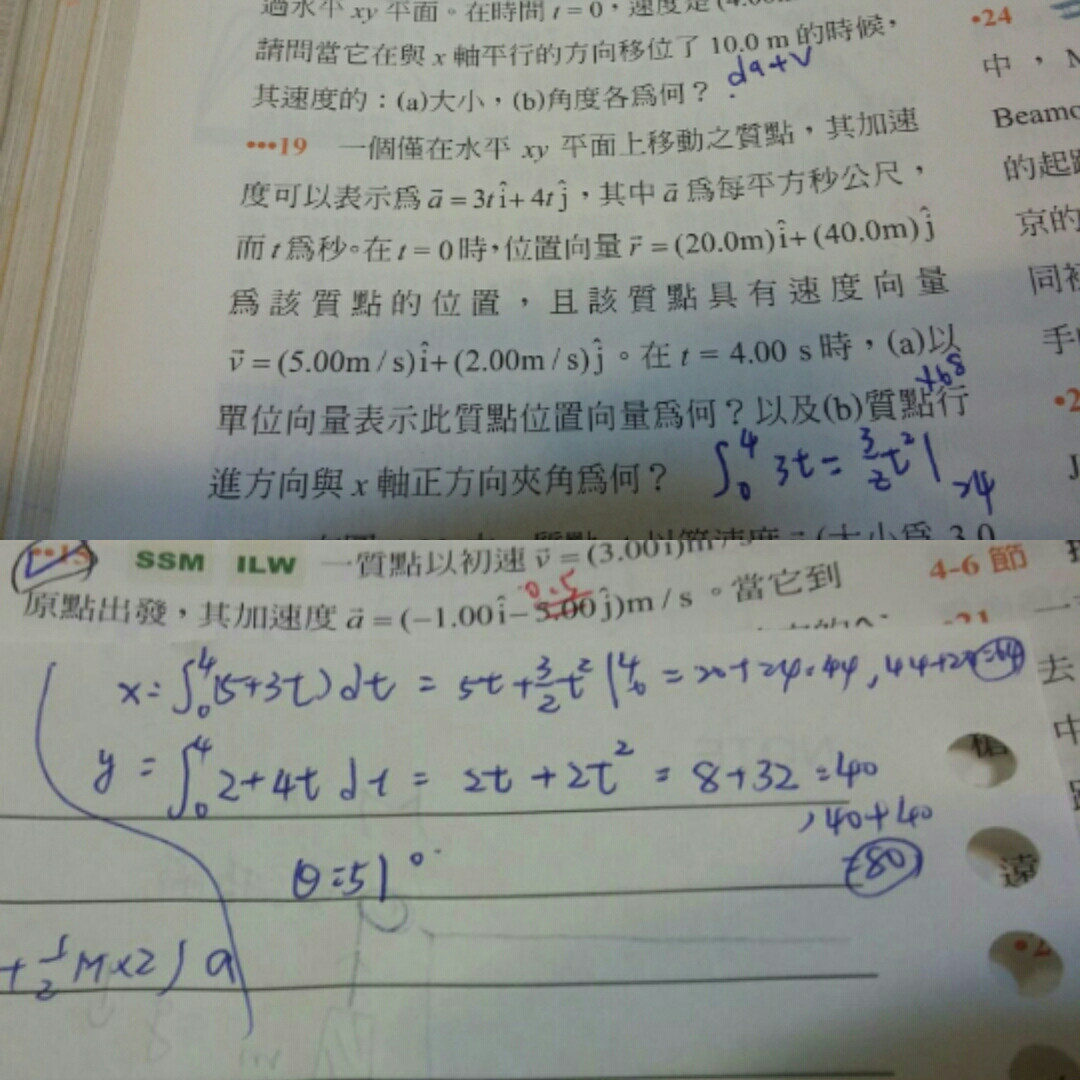 過水平 xy 平面。在時間 t = 0，速度是 (4.00
請問當它在與 x 軸平行的方向移位了 10.0 m 的時候，
其速度的：(a)大小，(b)角度各為何？
•••19 一個僅在水平 xy 平面上移動之質點，其加速
度可以表示為 a⃗ = 3t î + 4t ĵ，其中 a⃗ 為每平方秒公尺，
而 t 為秒。在 t = 0 時，位置向量 r⃗ = (20.0m) î + (40.0m) ĵ
為該質點的位置，且該質點具有速度向量
v⃗ = (5.00m / s) î + (2.00m / s) ĵ。在 t = 4.00 s 時，(a)以
單位向量表示此質點位置向量為何？以及(b)質點行
進方向與 x 軸正方向夾角為何？
∫₀⁴ 3t = 3/2 t² |
24
•24
中，M
Beamo
的起
京的
同初
手
SSM ILW 一質點以初速 v⃗ = (3.00 î)m
0.5
原點出發，其加速度 a⃗ = (−1.00 î − 5.00 ĵ)m / s。當它到
4-6 節
•21
x = ∫₀⁴ (5+3t) dt = 5t + 3/2 t² |⁴₀ = 20+24=44 , 44+20=64
y = ∫₀⁴ 2+4t dt = 2t + 2t² = 8+32 = 40
, 40+40
=80
θ=51°
+ 1/2 M×2) a
去
中
遠